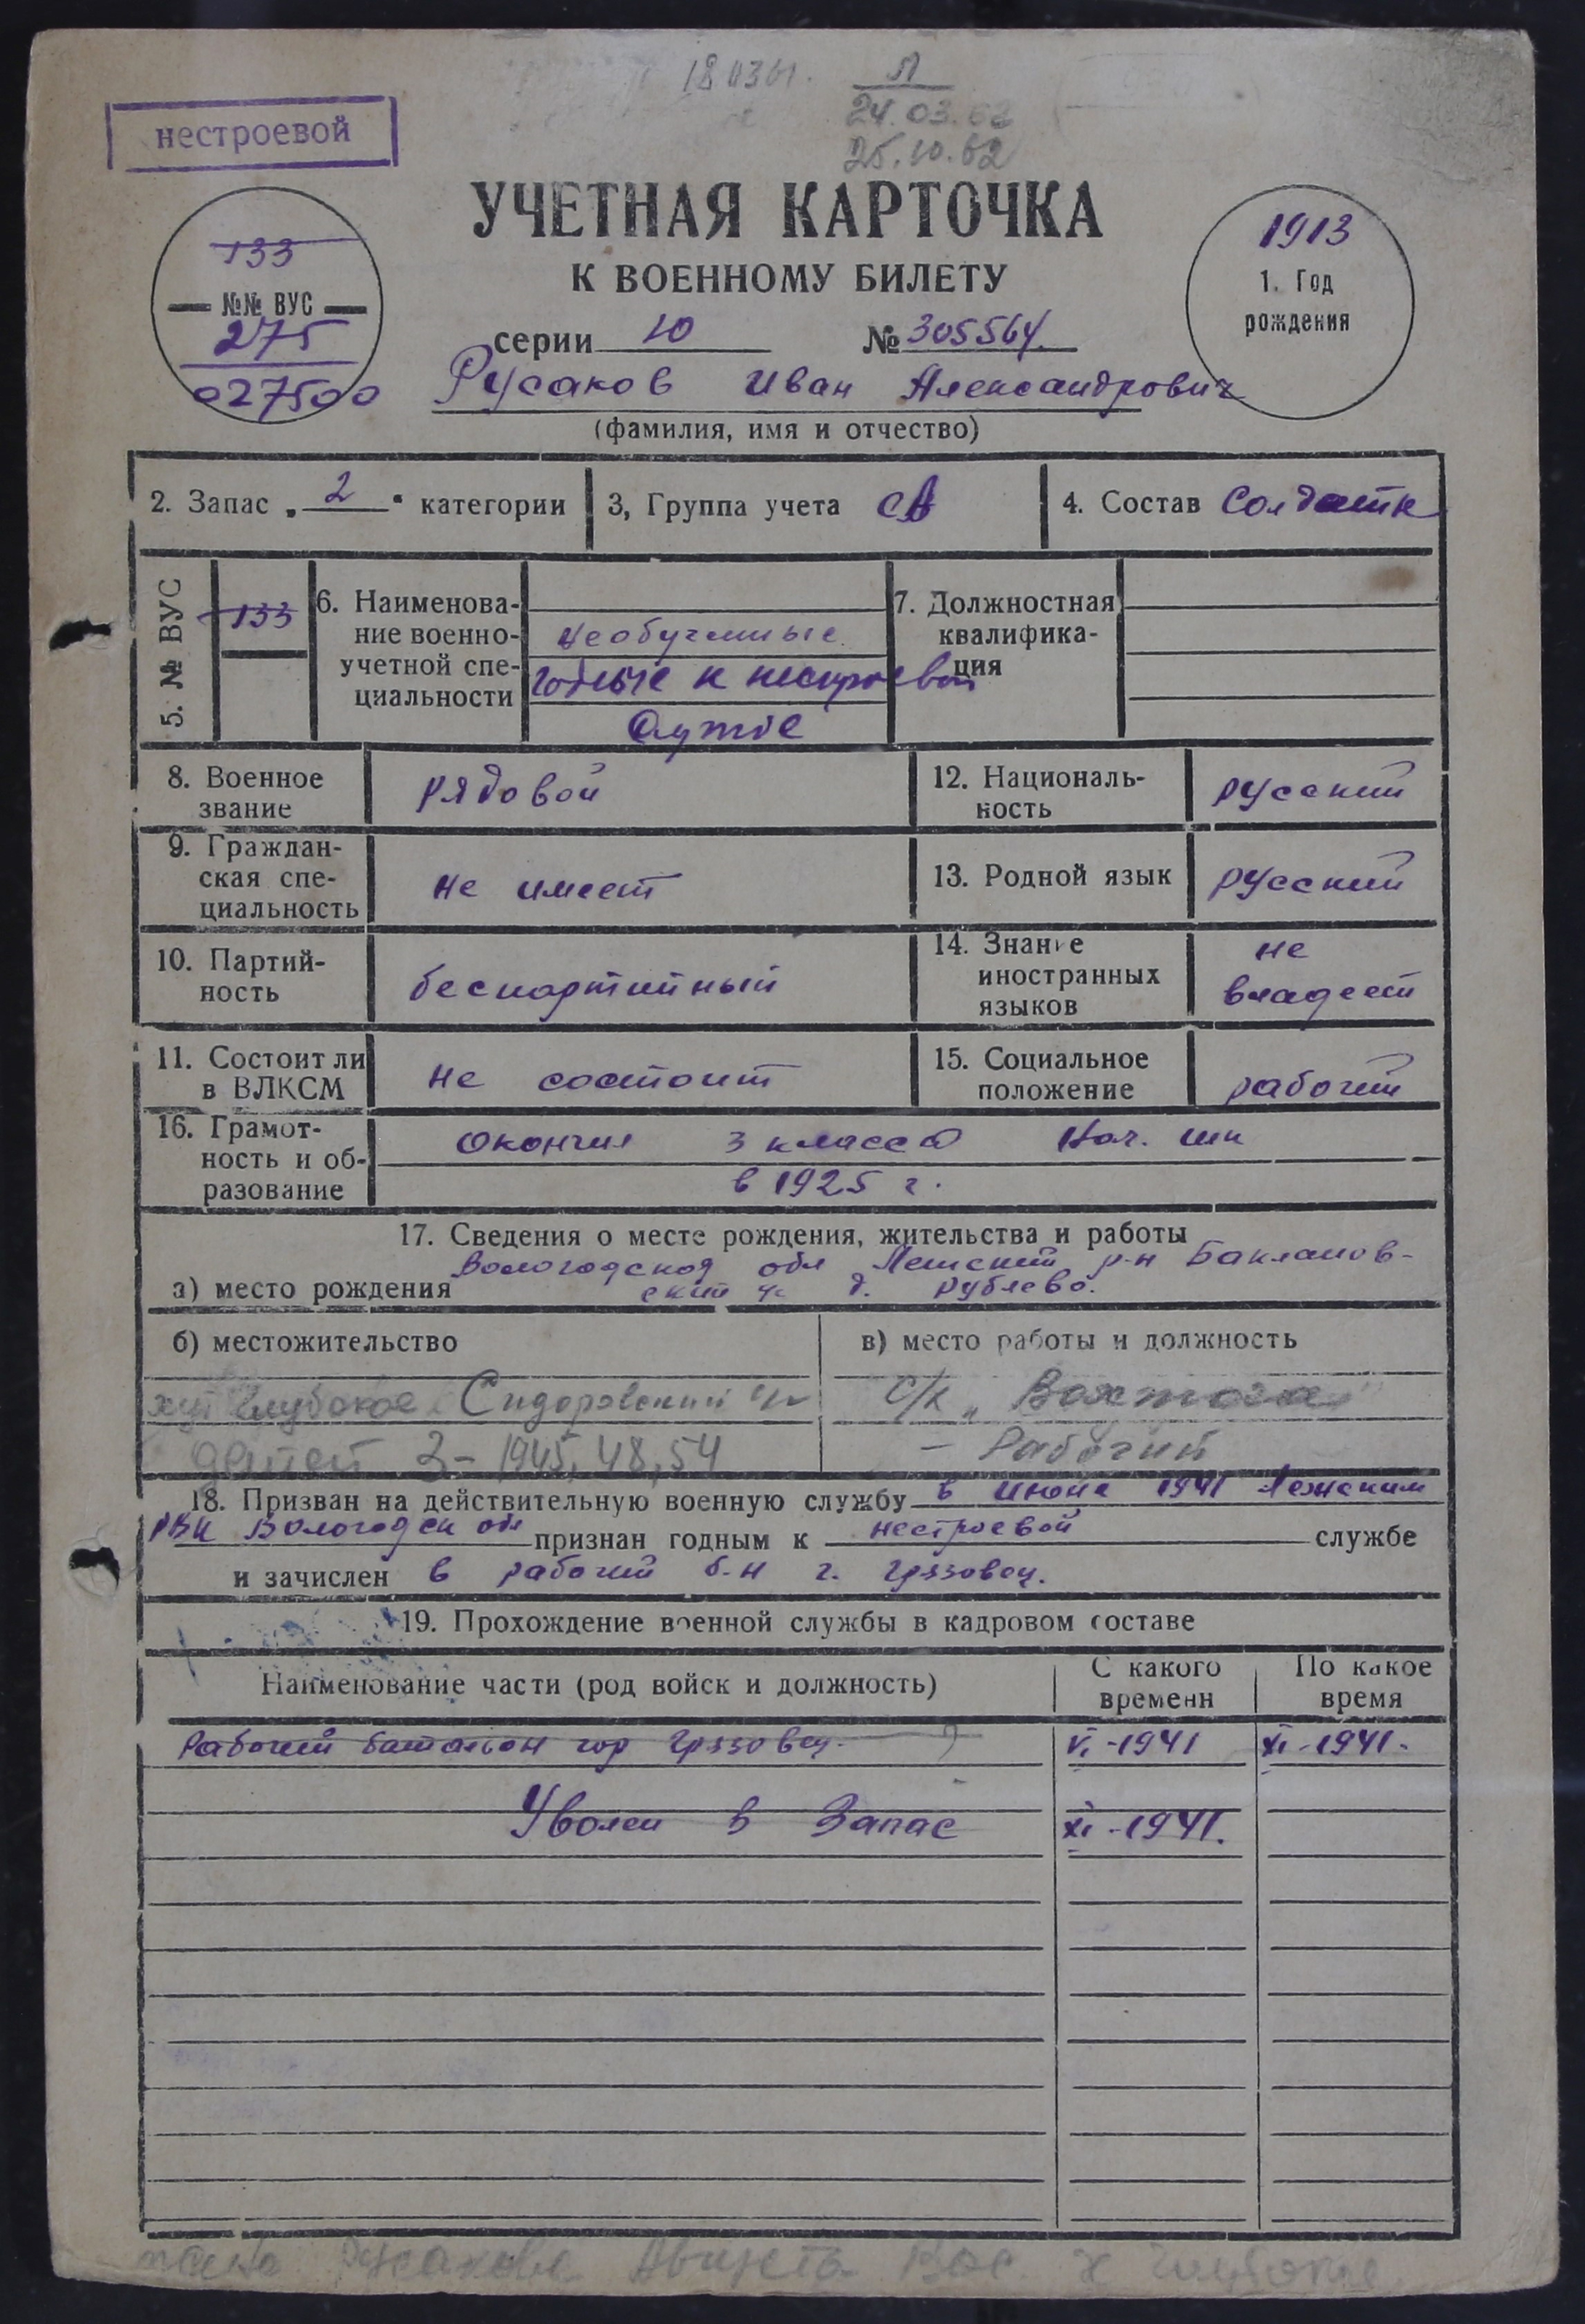 24.03.62
нестроевой
25.10.62
УЧЕТНАЯ КАРТОЧКА
К ВОЕННОМУ БИЛЕТУ
133
№№ ВУС
275
027500
1913
1. Год
рождения
серии 10 № 305564.
Русаков Иван Александрович
(фамилия, имя и отчество)
2. Запас „ 2 " категории 3, Группа учета СА 4. Состав Солдатск
5. № ВУС 133
6. Наименова-
ние военно-
учетной спе-
циальности
необученные
годные к нестроевой
службе
7. Должностная
квалифика-
ция
8. Военное
звание
рядовой
12. Националь-
ность
русский
9. Граждан-
ская спе-
циальность
не имеет
13. Родной язык русский
10. Партий-
ность
беспартийный
14. Знание
иностранных
языков
не
владеет
11. Состоит ли
в ВЛКСМ
не состоит
15. Социальное
положение
рабочий
16. Грамот-
ность и об-
разование
Окончил 3 класса Нач. шк
в 1925 г.
17. Сведения о месте рождения, жительства и работы
Вологодской обл Лежский р-н Бакланов-
а) место рождения ский с/с д. Рублево.
б) местожительство
хут Глубокое Сидоровский с/с
детей 3 - 1945, 48, 54
в) место работы и должность
с/х „Вохтога"
- Рабочий
18. Призван на действительную военную службу в июне 1941 Лежским
РВК Вологодск обл признан годным к нестроевой службе
и зачислен в рабочий б-н г. Грязовец.
19. Прохождение военной службы в кадровом составе
Наименование части (род войск и должность) С какого
времени По какое
время
Рабочий батальон гор Грязовец. VI-1941 XI-1941.
Уволен в Запас XI-1941.
жена Русакова Августа Вас. х Глубокое